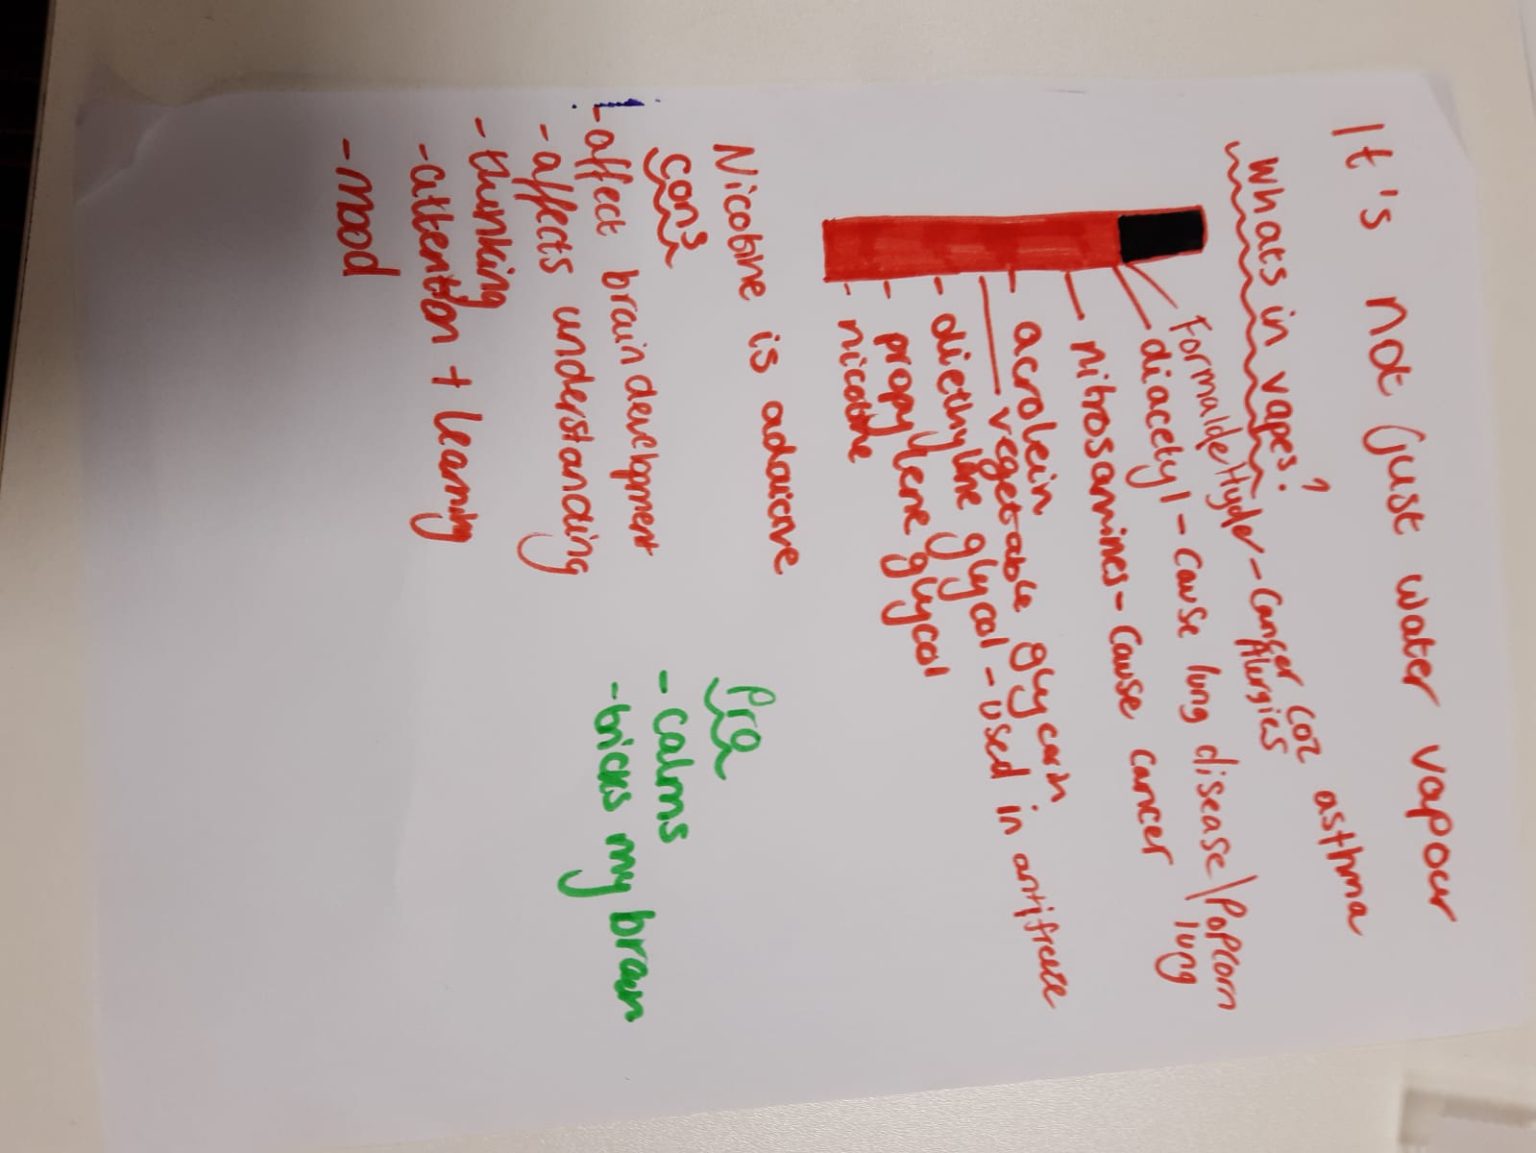 It's not just water vapour
Whats in vapes?
asthma
CO2
FormaldeHyder - Cancer
Alergies
diacetyl - cause lung disease/Popcorn
lung
nitrosamines - cause cancer
acrolein
vegetable glycerin
diethyline glycol - used in antifreeze
propylene glycol
nicotine
Nicotine is addictive
cons
- affect brain development
- affects understanding
- thinking
- attention + learning
- mood
Pro
- calms
- bricks my brain